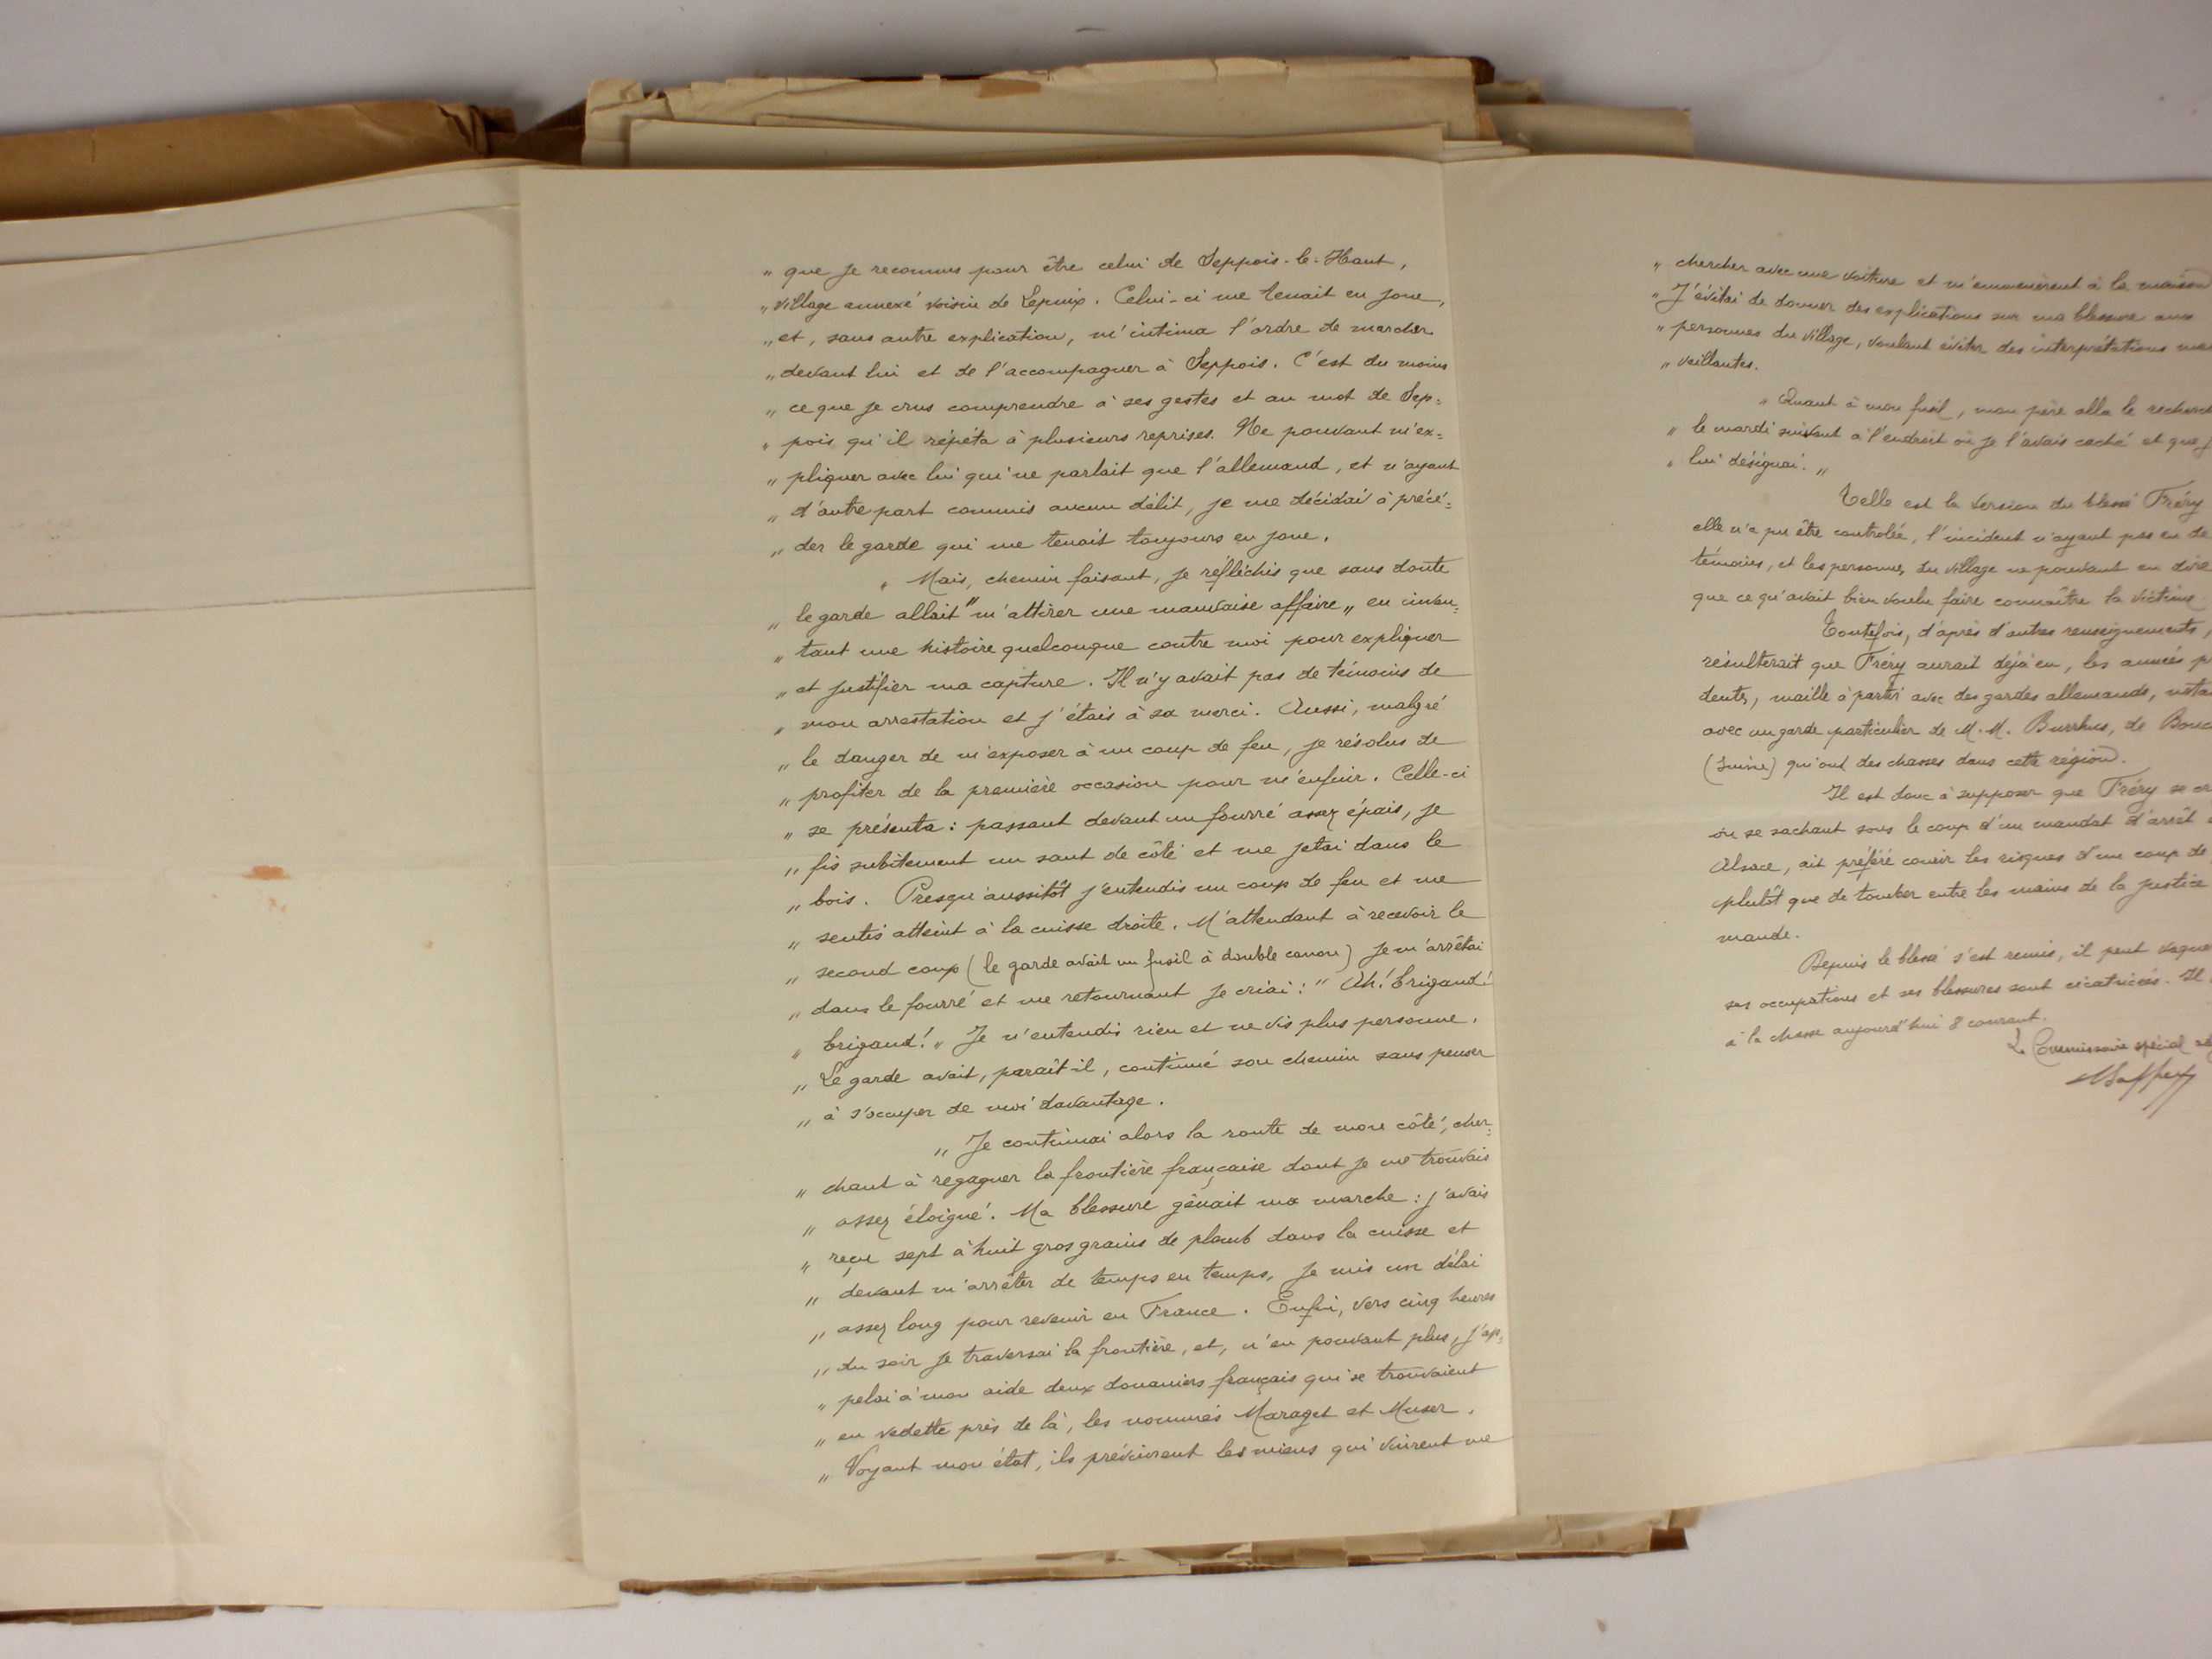 „ que je reconnus pour être celui de Seppois-le-Haut,
„ village annexé voisin de Lepuix. Celui-ci me tenait en joue,
„ et, sans autre explication, m'intima l'ordre de marcher
„ devant lui et de l'accompagner à Seppois. C'est du moins
„ ce que je crus comprendre à ses gestes et au mot de Sep=
„ pois qu'il répéta à plusieurs reprises. Ne pouvant m'ex=
„ pliquer avec lui qui ne parlait que l'allemand, et n'ayant
„ d'autre part commis aucun délit, je me décidai à précé=
„ der le garde qui me tenait toujours en joue.
„ Mais, chemin faisant, je réfléchis que sans doute
„ le garde allait "m'attirer une mauvaise affaire„ en inven=
„ tant une histoire quelconque contre moi pour expliquer
„ et justifier ma capture. Il n'y avait pas de témoins de
„ mon arrestation et j'étais à sa merci. Aussi, malgré
„ le danger de m'exposer à un coup de feu, je résolus de
„ profiter de la première occasion pour m'enfuir. Celle-ci
„ se présenta : passant devant un fourré assez épais, je
„ fis subitement un saut de côté et me jetai dans le
„ bois. Presqu'aussitôt j'entendis un coup de feu et me
„ sentis atteint à la cuisse droite. M'attendant à recevoir le
„ second coup (le garde avait un fusil à double canon) je m'arrêtai
„ dans le fourré et me retournant je criai : " Ah! brigand!
„ brigand! „ Je n'entendis rien et ne vis plus personne.
„ Le garde avait, paraît-il, continué son chemin sans penser
„ à s'occuper de moi davantage.
„ Je continuai alors la route de mon côté, cher=
„ chant à regagner la frontière française dont je me trouvais
„ assez éloigné. Ma blessure gênait ma marche : j'avais
„ reçu sept à huit gros grains de plomb dans la cuisse et
„ devant m'arrêter de temps en temps, je mis un délai
„ assez long pour revenir en France. Enfin, vers cinq heures
„ du soir je traversai la frontière, et, n'en pouvant plus, j'ap=
„ pelai à mon aide deux douaniers français qui se trouvaient
„ en vedette près de là, les nommés Maraget et Muser.
„ Voyant mon état, ils prévinrent les miens qui vinrent me
„ chercher avec une voiture et m'emmenèrent à la maison
„ J'évitai de donner des explications sur ma blessure aux
„ personnes du village, voulant éviter des interprétations
„ veillantes.
„ Quant à mon fusil, mon père alla le
„ le mardi suivant à l'endroit où je l'avais caché et que
„ lui désignai. „
Telle est la version du blessé Fréry
elle n'a pu être controlée, l'incident n'ayant pas eu de
témoins, et les personnes du village ne pouvant en dire
que ce qu'avait bien voulu faire connaître la victime.
Toutefois, d'après d'autres renseignements,
résulterait que Fréry aurait déjà eu, les années
dents, maille à partir avec des gardes allemands,
avec un garde particulier de M. M. Burrhus, de
(Suisse) qui ont des chasses dans cette région.
Il est donc à supposer que Fréry se
ou se sachant sous le coup d'un mandat d'arrêt
Alsace, ait préféré courir les risques d'un coup de
plutôt que de tomber entre les mains de la justice
mande.
Depuis le blessé s'est remis, il peut
ses occupations et ses blessures sont cicatricées. Il
à la chasse aujourd'hui 8 courant.
Le Commissaire spécial